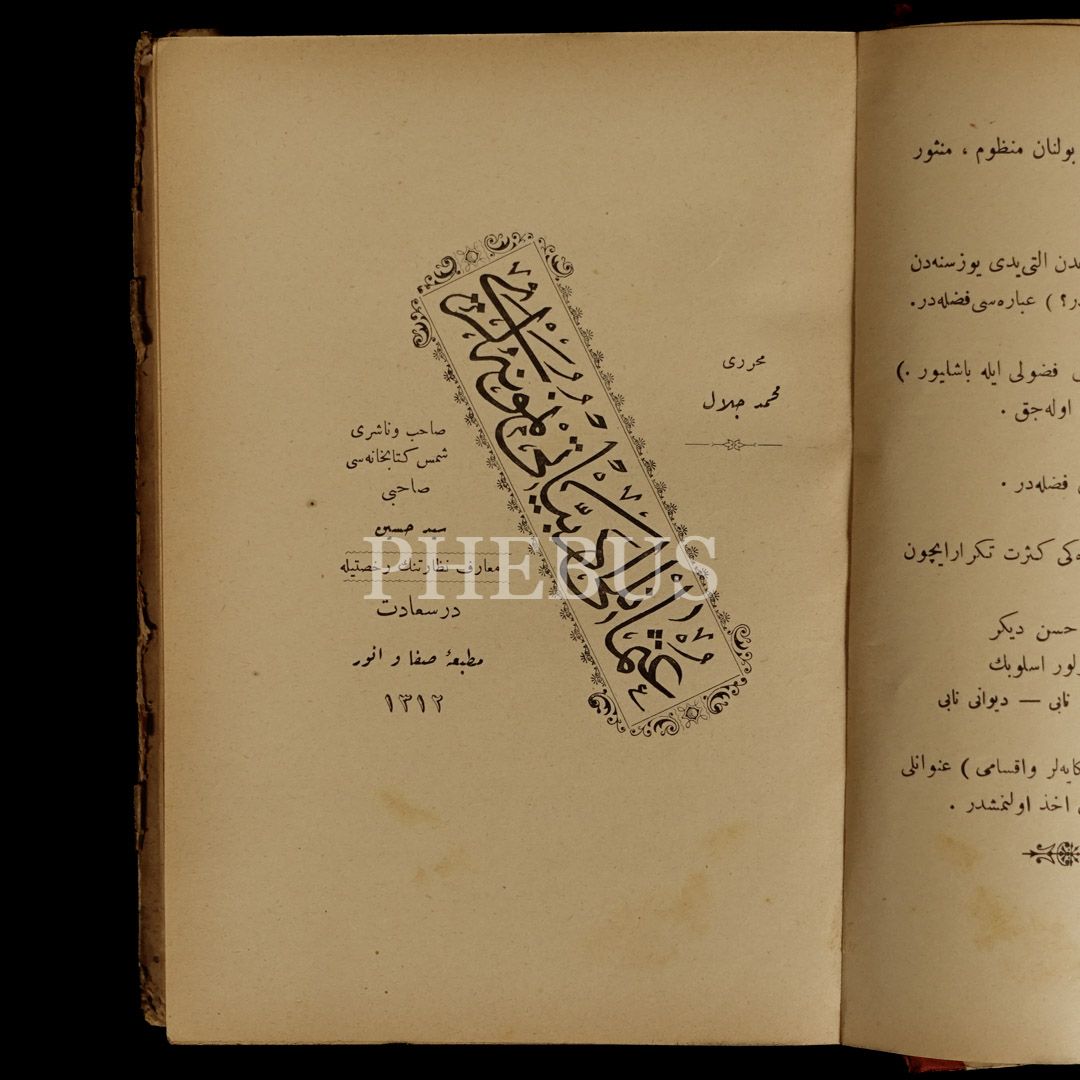 محرری
محمد جلال
عثمانلی ادبیاتی نمونه لری
صاحب و ناشری
شمس کتابخانه‌سی
صاحبی
سید حسین
معارف نظارتنك رخصتیله
درسعادت
مطبعهٔ صفا و انور
١٣١٢
PHEBUS
بولنان منظوم ، منثور
التی‌یدی یوز سنه‌دن
در؟ ) عباره‌سی فضله‌در.
فضولی ایله باشلیور .)
اوله‌جق .
فضله‌در .
کثرت تکرار ایچون
حسن دیکر
اسلوبك
نابی — دیوانی نابی
واقسامی ) عنوانلی
اخذ اولنمشدر .